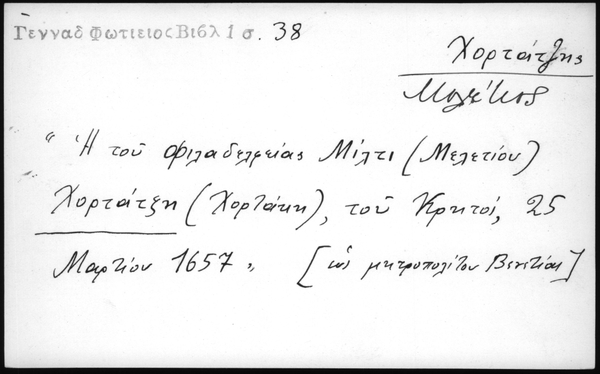 Γενναδ Φωτιειος Βιβλ 1 σ. 38
Χορτάτζης
Μελέτιος
"Ἡ τοῦ Φιλαδελφείας Μίλτι (Μελετίου)
Χορτάτζη (Χορτάκη), τοῦ Κρητός, 25
Μαρτίου 1657" [ὡς μητροπολίτου Βενετίας]